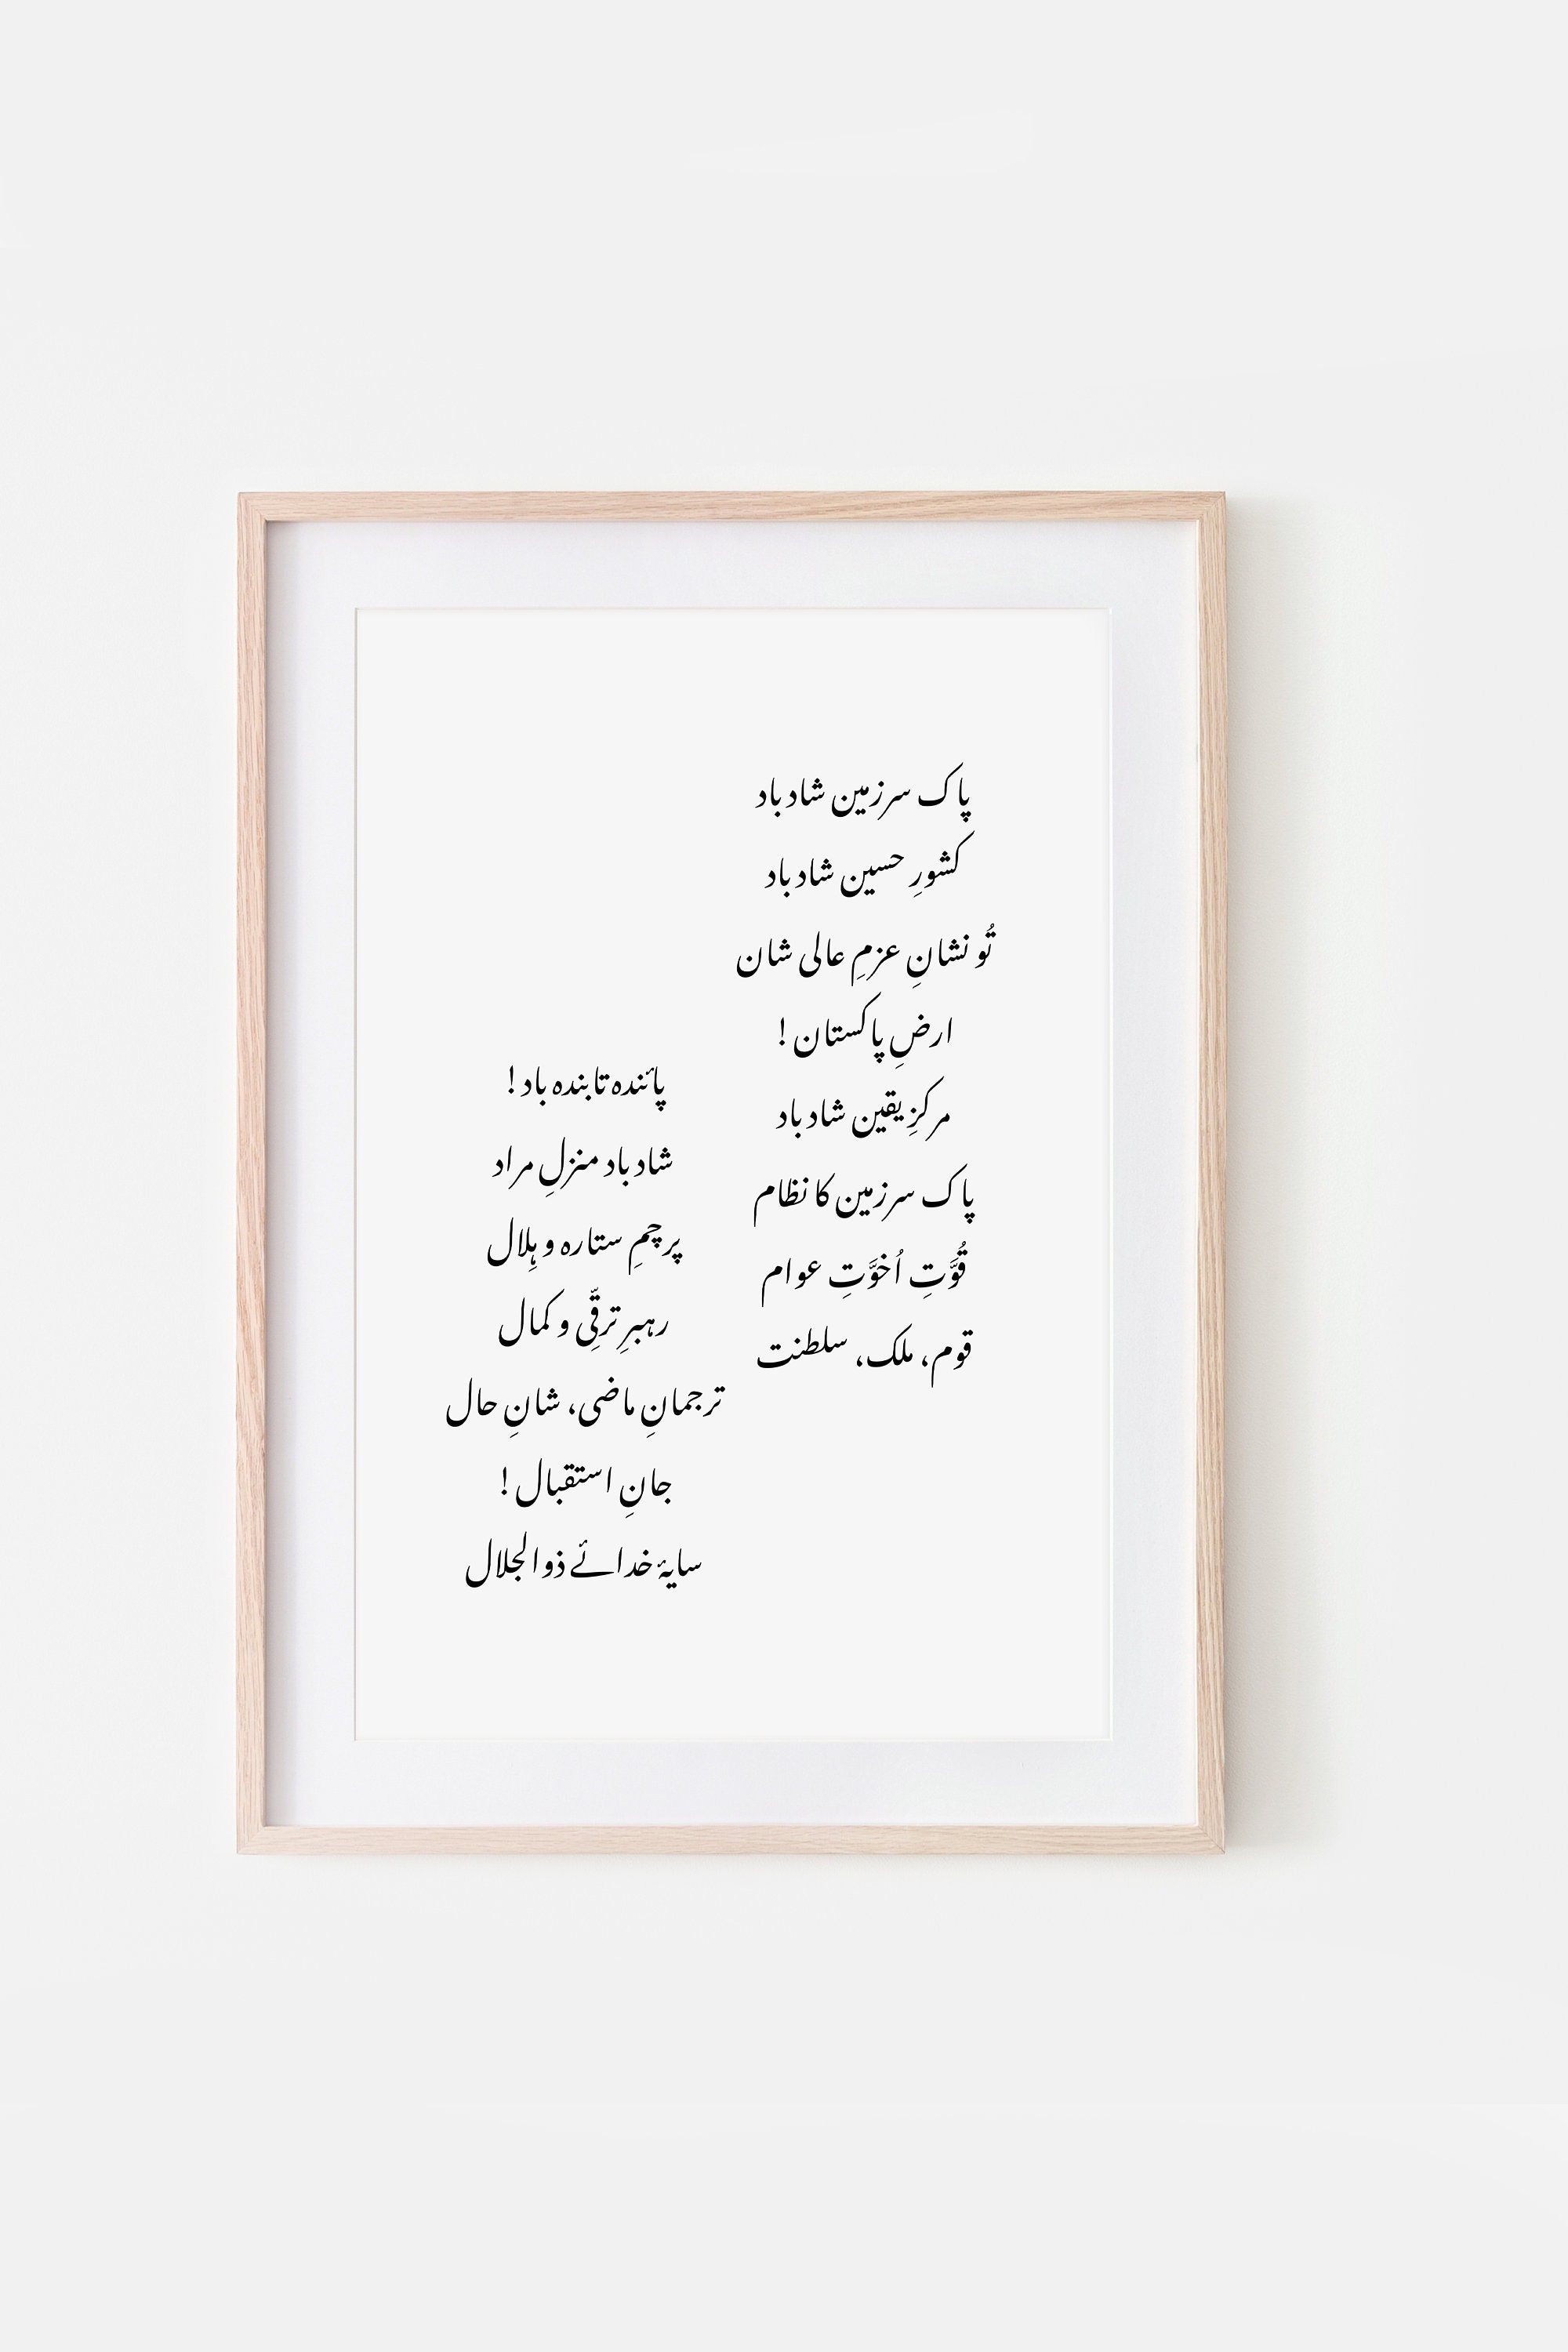 پاک سرزمین شاد باد
کشورِ حسین شاد باد
تُو نشانِ عزمِ عالی شان
ارضِ پاکستان!
مرکزِ یقین شاد باد
پاک سرزمین کا نظام
قُوَّتِ اُخوَّتِ عوام
قوم، ملک، سلطنت
پائندہ تابندہ باد!
شاد باد منزلِ مراد
پرچمِ ستارہ و ہِلال
رہبرِ ترقّیِ و کمال
ترجمانِ ماضی، شانِ حال
جانِ استقبال!
سایۂ خدائے ذوالجلال